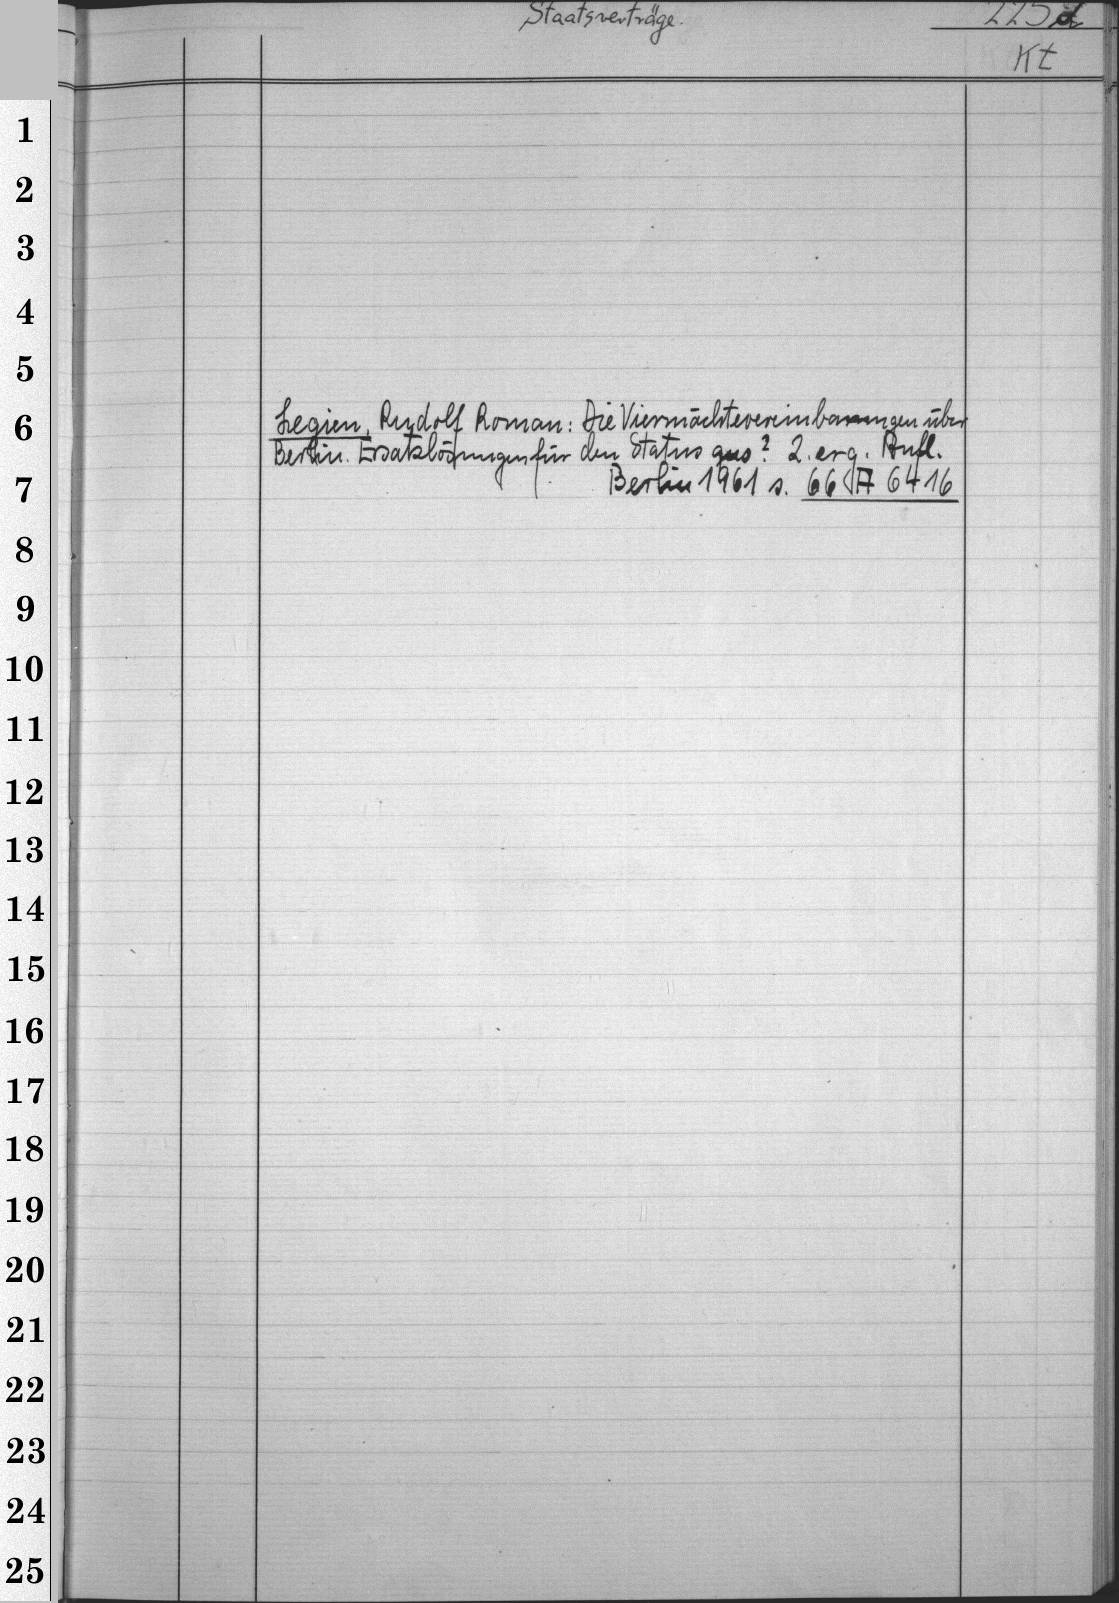 Staatsverträge.
225 d
Kt
Legien, Rudolf Roman: Die Viermächtevereinbarungen über
Berlin. Ersatzlösungen für den Status quo? 2. erg. Aufl.
Berlin 1961 s. 66 A 6416
1
2
3
4
5
6
7
8
9
10
11
12
13
14
15
16
17
18
19
20
21
22
23
24
25